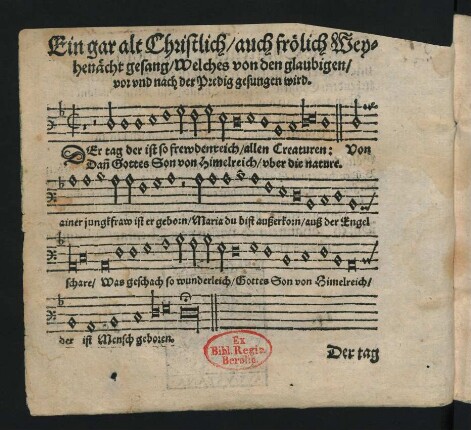 Ein gar alt Christlich/auch frölich Wey-
henächt gesang/Welches von den glaubigen/
vor vnd nach der Predig gesungen wird.
DEr tag der ist so frewdenreich/allen Creaturen: Von
Dañ Gottes Son von Himelreich/vber die nature.
ainer jungkfraw ist er geborn/Maria du bist außerkorn/auß der Engel
schare/ Was geschach so wunderleich/Gottes Son von Himelreich/
der ist Mensch geboren.
Ex
Bibl. Regia
Berolin.
Der tag